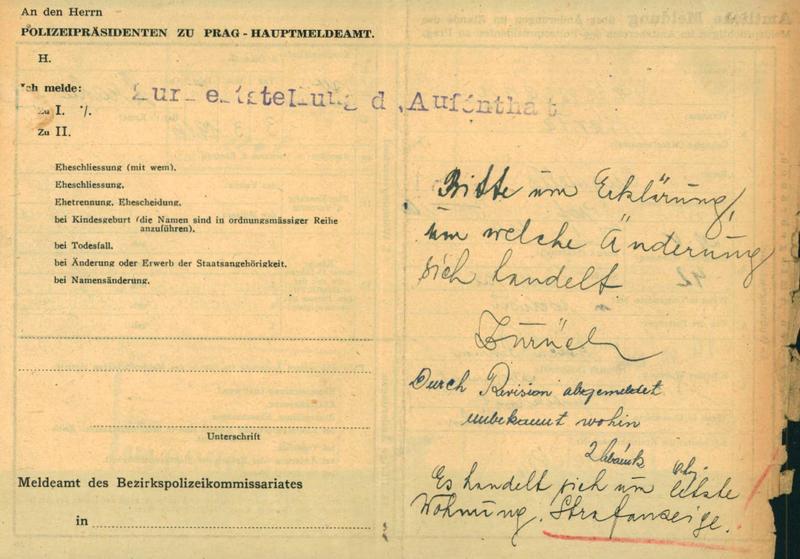 An den Herrn
POLIZEIPRÄSIDENTEN ZU PRAG - HAUPTMELDEAMT.
H.
Ich melde:
Zu I. ./.
Zu II.
Eheschliessung (mit wem).
Eheschliessung.
Ehetrennung, Ehescheidung.
bei Kindesgeburt (die Namen sind in ordnungsmässiger Reihe
anzuführen).
bei Todesfall.
bei Änderung oder Erwerb der Staatsangehörigkeit.
bei Namensänderung.
Unterschrift
Meldeamt des Bezirkspolizeikommissariates
in
Bitte um Erklärung,
um welche Änderung
sich handelt
Zurück
Durch Revision abgemeldet
unbekannt wohin
Es handelt sich um letzte
Wohnung. Strafanzeige.